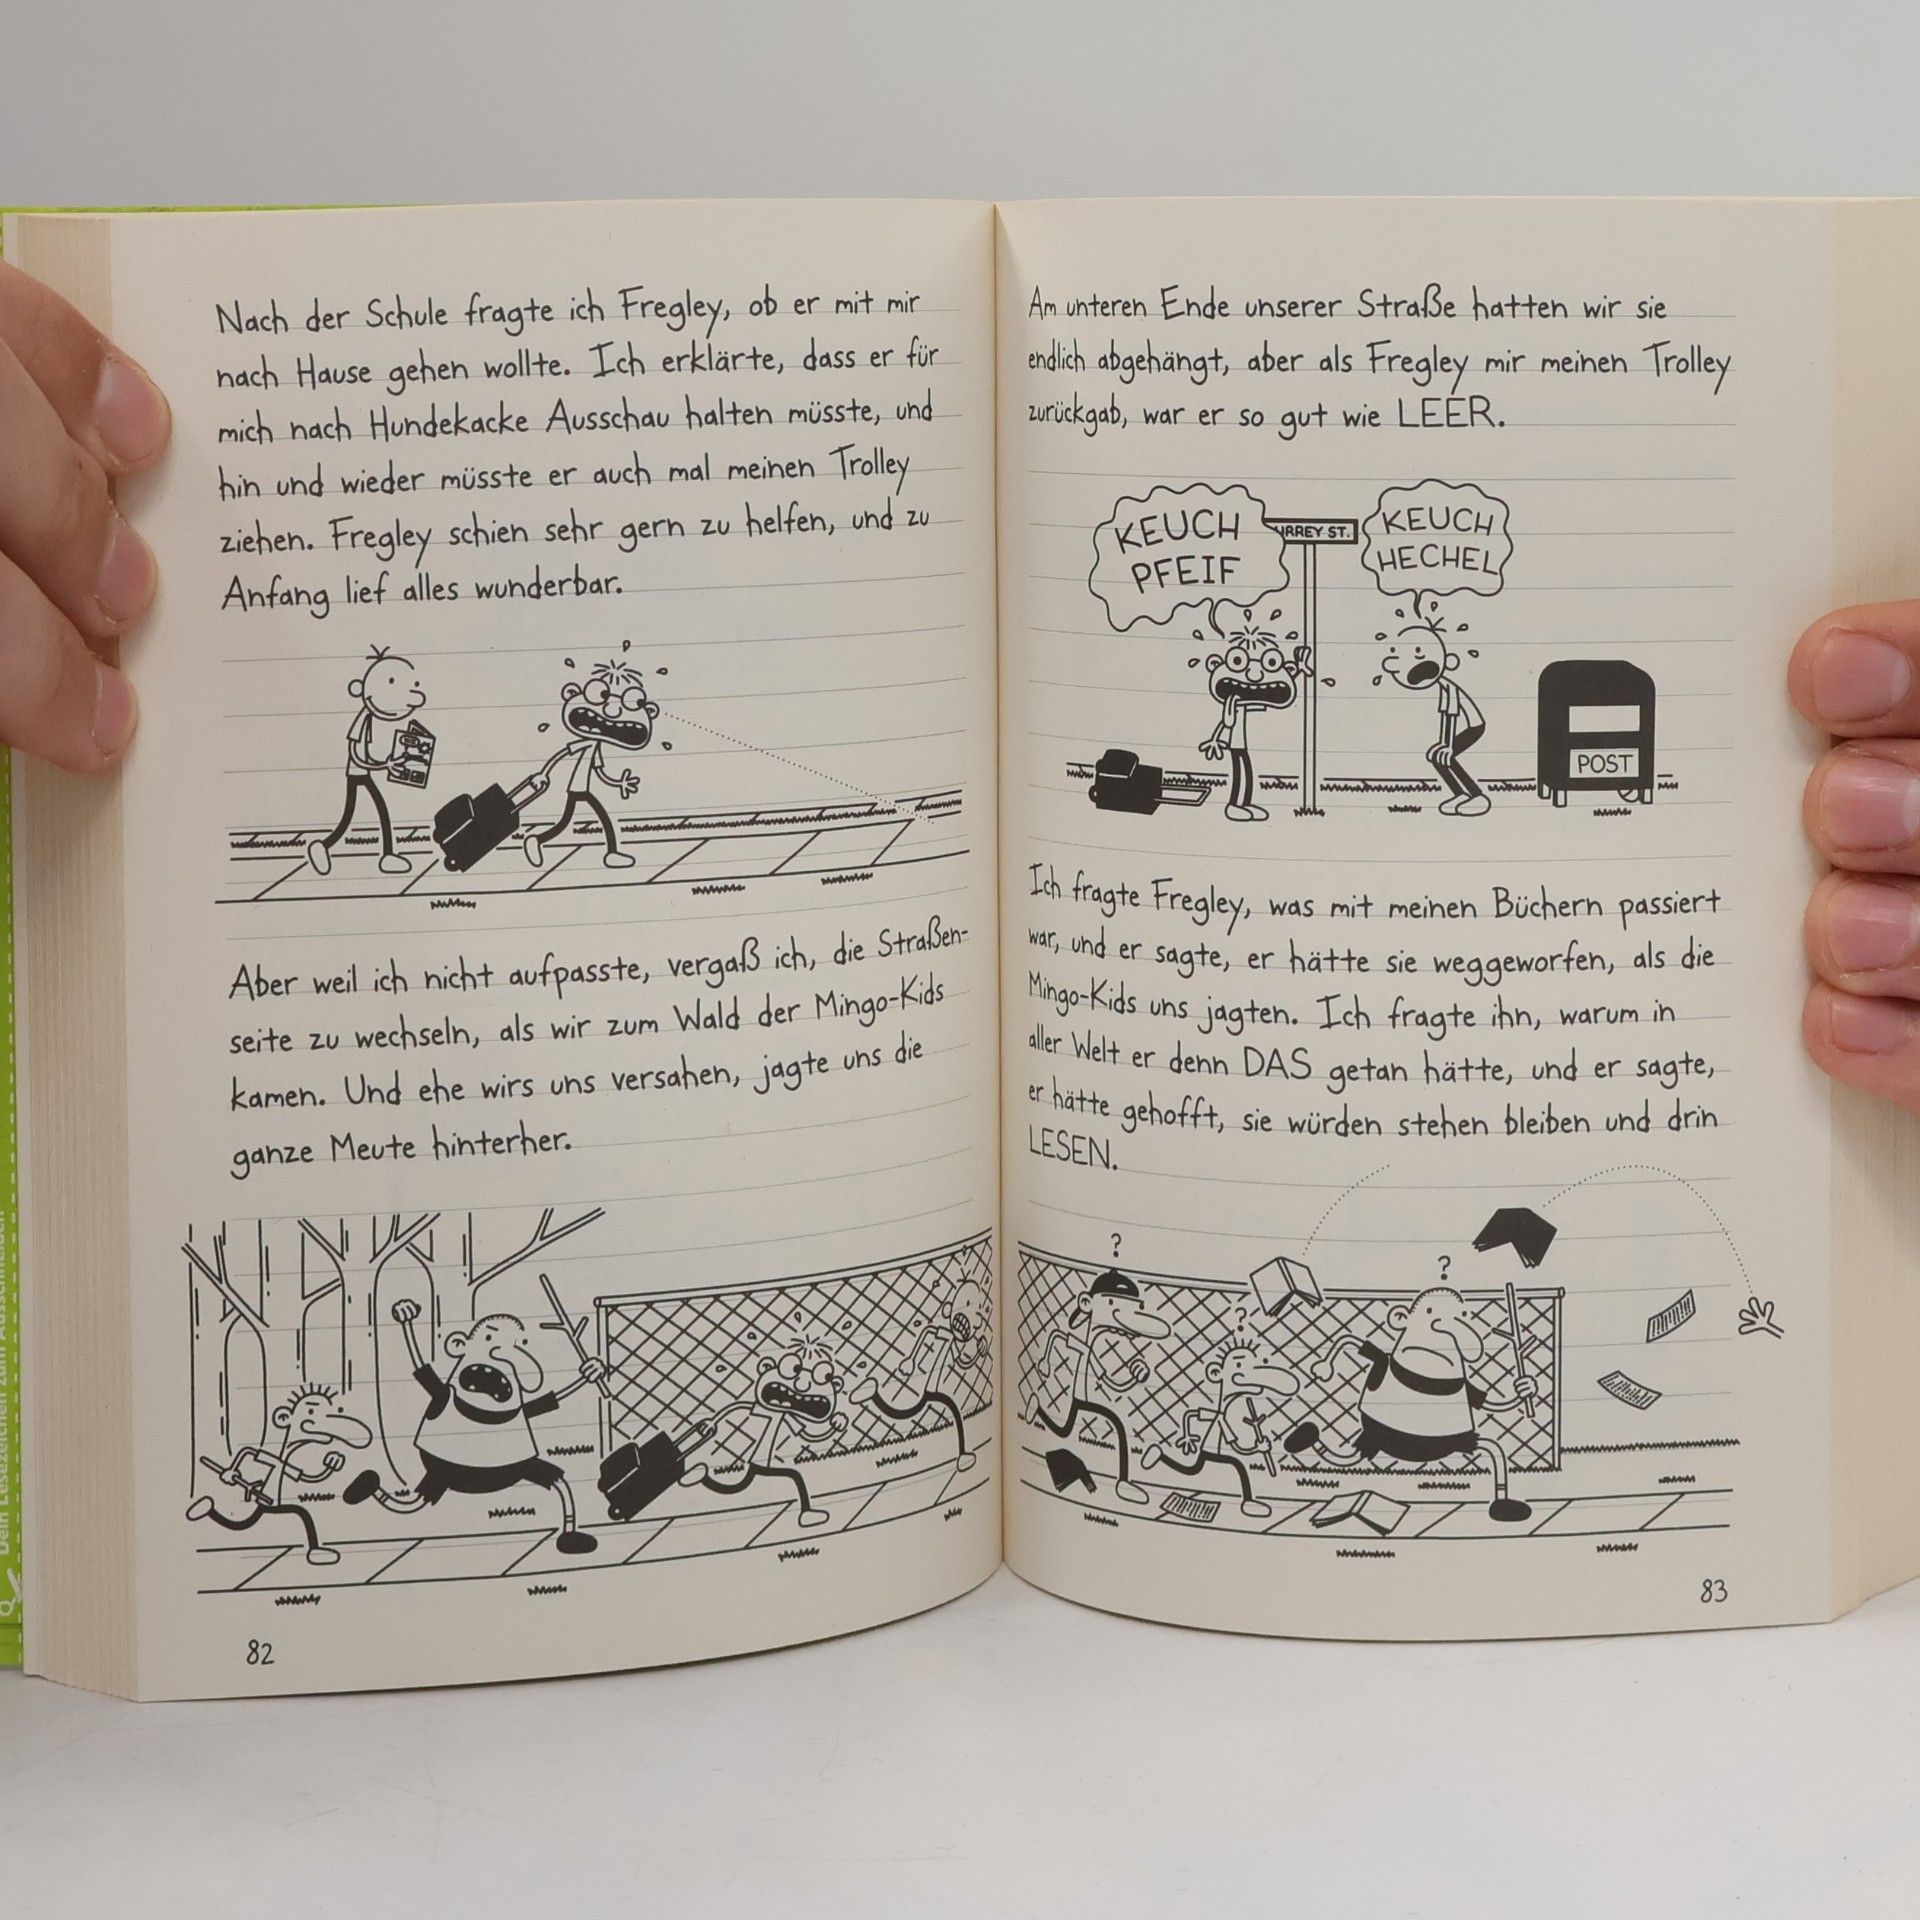 Nach der Schule fragte ich Fregley, ob er mit mir
nach Hause gehen wollte. Ich erklärte, dass er für
mich nach Hundekacke Ausschau halten müsste, und
hin und wieder müsste er auch mal meinen Trolley
ziehen. Fregley schien sehr gern zu helfen, und zu
Anfang lief alles wunderbar.
Aber weil ich nicht aufpasste, vergaß ich, die Straßen-
seite zu wechseln, als wir zum Wald der Mingo-Kids
kamen. Und ehe wirs uns versahen, jagte uns die
ganze Meute hinterher.
82
Am unteren Ende unserer Straße hatten wir sie
endlich abgehängt, aber als Fregley mir meinen Trolley
zurückgab, war er so gut wie LEER.
KEUCH
PFEIF
URREY ST.
KEUCH
HECHEL
POST
Ich fragte Fregley, was mit meinen Büchern passiert
war, und er sagte, er hätte sie weggeworfen, als die
Mingo-Kids uns jagten. Ich fragte ihn, warum in
aller Welt er denn DAS getan hätte, und er sagte,
er hätte gehofft, sie würden stehen bleiben und drin
LESEN.
?
?
?
83
Dein Lesezeichen zum Ausschneiden